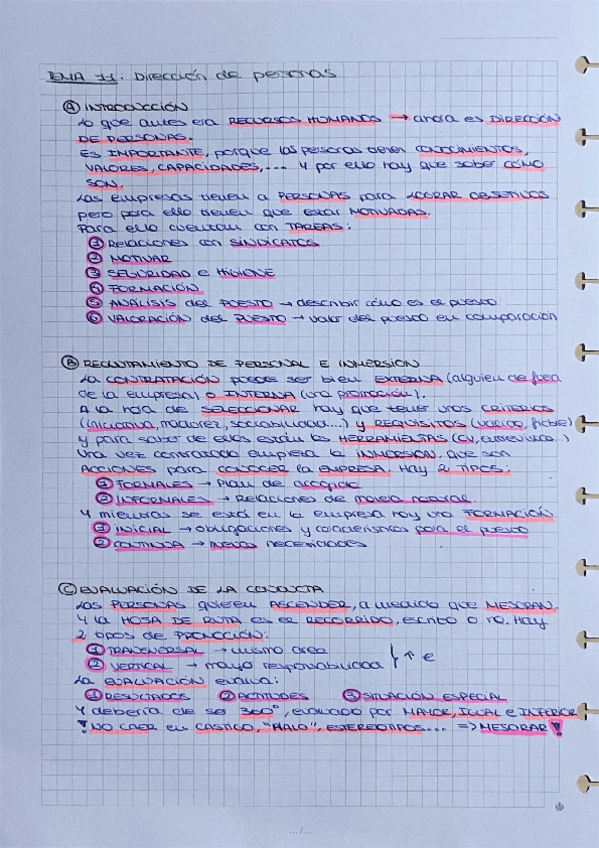 TEMA 11: Dirección de personas
Ⓐ INTRODUCCIÓN
Lo que antes era RECURSOS HUMANOS → ahora es DIRECCIÓN
DE PERSONAS.
ES IMPORTANTE, porque las personas tienen CONOCIMIENTOS,
VALORES, CAPACIDADES,... Y por ello hay que saber CÓMO
SON.
Las empresas tienen a PERSONAS para LOGRAR OBJETIVOS
pero para ello tienen que estar MOTIVADAS.
Para ello cuentan con TAREAS:
① Relaciones con SINDICATOS
② MOTIVAR
③ SEGURIDAD e HIGIENE
④ FORMACIÓN
⑤ ANÁLISIS del PUESTO → describir cómo es el puesto
⑥ VALORACIÓN del PUESTO → valor del puesto en comparación
Ⓑ RECLUTAMIENTO DE PERSONAL E INMERSION
La CONTRATACIÓN puede ser bien EXTERNA (alguien de fuera
de la empresa) o INTERNA (una promoción).
A la hora de SELECCIONAR hay que tener unos CRITERIOS
(iniciativa, madurez, sociabilidad...) y REQUISITOS (
y para saber de ellos están las HERRAMIENTAS (CV, entrevista...)
Una vez contratado empieza la INMERSIÓN, que son
ACCIONES para CONOCER la EMPRESA. Hay 2 TIPOS:
① FORMALES → Plan de acogida
② INFORMALES → Relaciones de manera natural
Y mientras se está en la empresa hay una FORMACIÓN
① INICIAL → obligaciones y características para el puesto
② CONTINUA → nuevas necesidades
Ⓒ EVALUACIÓN DE LA CONDUCTA
Las PERSONAS quieren ASCENDER, a medida que MEJORAN
Y la HOJA DE RUTA es el RECORRIDO, escrito o no. Hay
2 tipos de PROMOCIÓN:
① TRANSVERSAL → misma área
② VERTICAL → mayor responsabilidad } ↑ €
La EVALUACIÓN evalúa:
① RESULTADOS ② ACTITUDES ③ SITUACIÓN ESPECIAL
Y debería de ser 360°, evaluado por MAYOR, IGUAL e INFERIOR
! NO CAER en CASTIGO, "HALO", ESTEREOTIPOS... => MEJORAR !